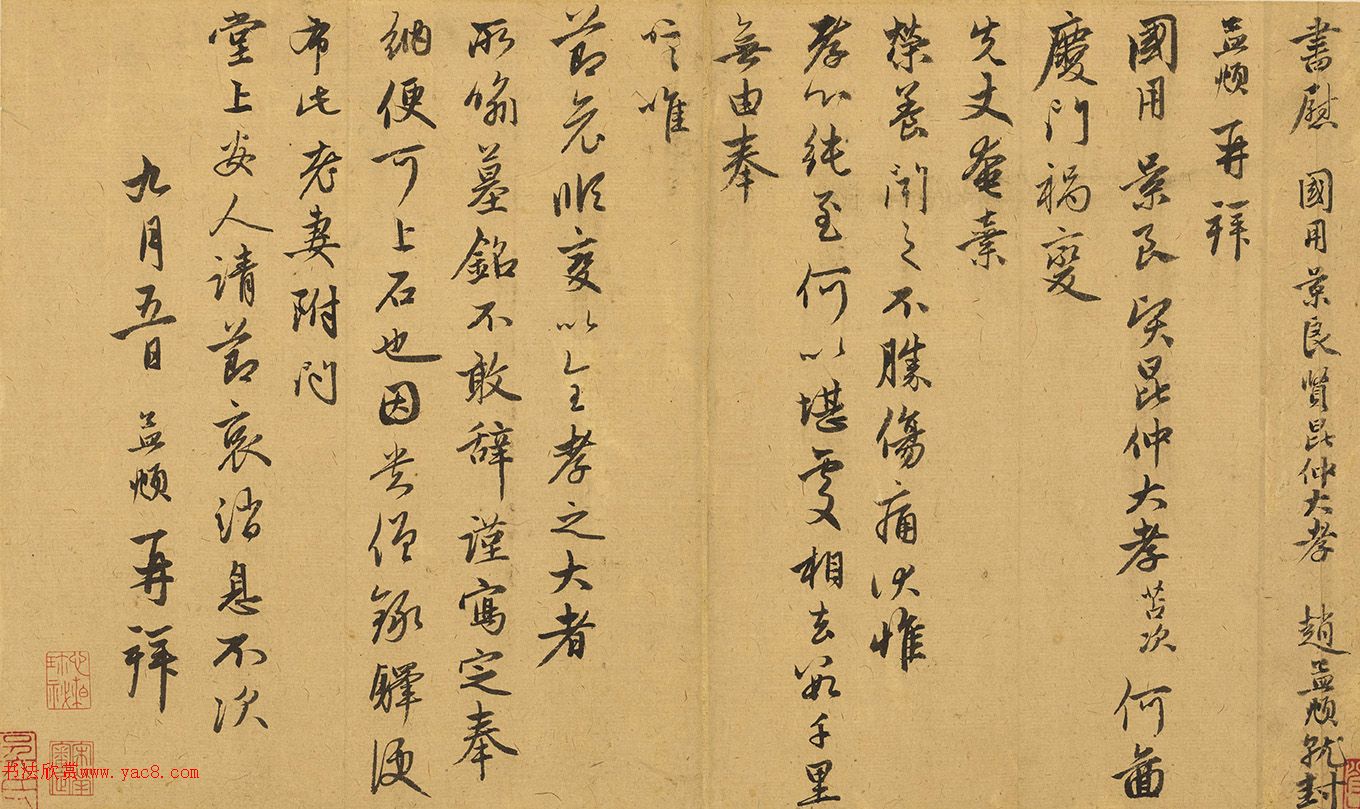 書慰 國用景良賢昆仲大孝 趙孟頫就封
孟頫再拜
國用景良賢昆仲大孝苫次何啚
慶門禍變
先丈奄棄
榮養聞之不勝傷痛伏惟
孝心純至何以堪處相去數千里
無由奉
唁唯
節哀順變以全孝之大者
所喻墓銘不敢辭謹寫定奉
納便可上石也因僧錄驛便
布此老妻附問
堂上安人請節哀消息不次
九月五日 孟頫再拜
书法欣赏www.yac8.com